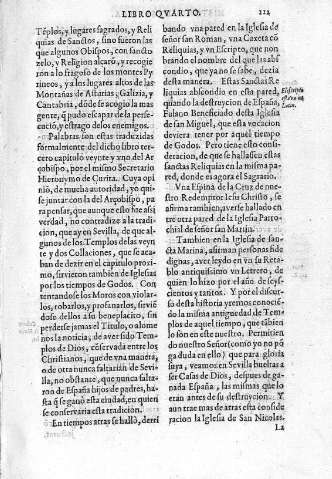 LIBRO QVARTO. 212
Tẽplos, y lugares sagrados, y Reli
quias de Sanctos, sino fueron las
que algunos Obispos, con sancto
zelo, y Religion alçarõ, y recogie
rõ a lo fragoso de los montes Py
rineos, y a los lugares altos de las
Montañas de Asturias, Galizia, y
Cantabria, dõde se acogio la mas
gente, q̃ pudo escapar de la perse-
cució, y estrago de los enemigos.
Palabras son estas traduzidas
formalmente del dicho libro terce
ro capitulo veynte y vno del Ar
çobispo, por el mismo Secretario
Hieronymo de Çurita. Cuya opi
niõ, de mucha autoridad, yo qui-
se juntar con la del Arçobispo, pa
ra pensar, que aunque esto fue assi
verdad, no contradize a la tradi-
cion, que ay en Sevilla, de que al-
gunos de los Templos de las veyn
te y dos Collaciones, que se aca-
ban de dezir en el capitulo proxi-
mo, sirvieron tambien de Iglesias
por los tiempos de Godos. Con
tentandose los Moros con violar-
los, robarlos, y profanarlos, sirviẽ
dose dellos a su beneplacito, sin
perderse jamas el Titulo, o alome
nos la noticia, de aver sido Tem-
plos de Dios, cõservada entre los
Christianos, que de vna manera,
o de otra nunca faltariã de Sevi-
lla, no obstante, que nunca falta-
ron de España hijos de padres, has
ta q̃ se ganó esta ciudad, en quien
se conservaria esta tradicion.
En tiempos atras se halló, derri
bando vna pared en la Iglesia de
señor san Roman, vna Caxeta cõ
Reliquias, y vn Escripto, que non
brando el nombre del que las abs
condio, que ya no se sabe, dezia
desta manera. Estas Sanctas Re
liquias abscondio en esta pared,
quando la destruycion de España,
Fulano Beneficiado desta Iglesia
de san Miguel, que esta vocacion
deviera tener por aquel tiempo
de Godos. Pero tiene esto consi-
deracion, de que se hallassẽ estas
sanctas Reliquias en la misma pa-
red, donde es agora el Sagrario.
El escripto
estava en
Latin.
Vna Espina de la Cruz de nue-
stro Redemptor Iesu Christo, se
afirma tambien, averse hallado en
tre otra pared de la Iglesia Parro-
chial de señor san Martin.
Tambien en la Iglesia de san-
cta Marina, afirman personas fide
dignas, aver leydo en vn su Reta-
blo antiquissimo vn Letrero, de
quien lo hizo por el año de sey-
cientos y tantos. Y por el discur-
so desta historia yremos conociẽ-
do la misma antiguedad de Tem-
plos de aquel tiempo, que tambiẽ
lo son en este nuestro. Permitien
do nuestro Señor (como yo no põ
ga duda en ello) que para gloria
suya, veamos en Sevilla bueltas a
ser Casas de Dios, despues de ga-
nada España, las mismas que lo
eran antes de su destruycion. Y
aun trae mas de atras esta conside
racion la Iglesia de San Nicolas.
La